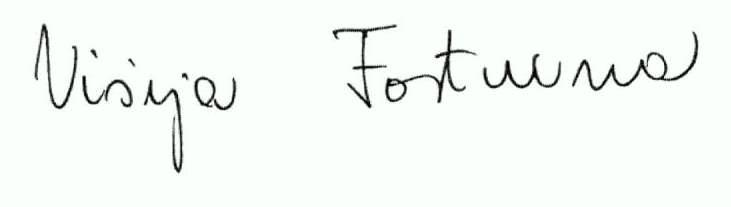 Višnja Fortuna